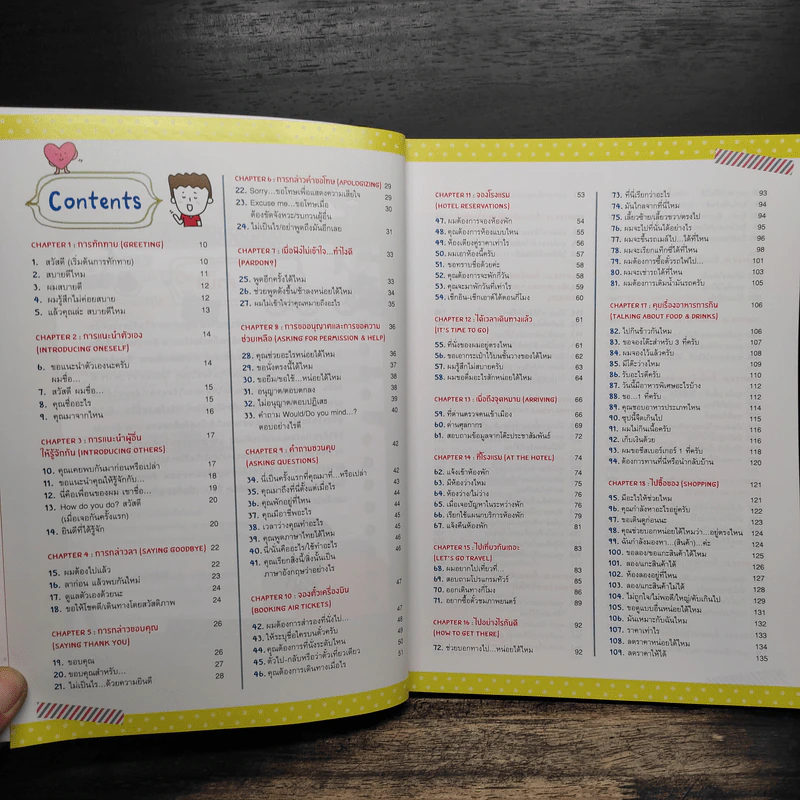 Contents
CHAPTER 1 : การทักทาย (GREETING) 10
1. สวัสดี (เริ่มต้นการทักทาย) 10
2. สบายดีไหม 11
3. ผมสบายดี 12
4. ผมรู้สึกไม่ค่อยสบาย 12
5. แล้วคุณล่ะ สบายดีไหม 13
CHAPTER 2 : การแนะนำตัวเอง 14
(INTRODUCING ONESELF)
6. ขอแนะนำตัวเองนะครับ 14
ผมชื่อ...
7. สวัสดี ผมชื่อ... 15
8. คุณชื่ออะไร 15
9. คุณมาจากไหน 16
CHAPTER 3 : การแนะนำผู้อื่น 17
ให้รู้จักกัน (INTRODUCING OTHERS)
10. คุณเคยพบกันมาก่อนหรือเปล่า 17
11. ขอแนะนำคุณให้รู้จักกับ... 18
12. นี่คือเพื่อนของผม เขาชื่อ... 19
13. How do you do? สวัสดี 20
(เมื่อเจอกันครั้งแรก)
14. ยินดีที่ได้รู้จัก 20
CHAPTER 4 : การกล่าวลา (SAYING GOODBYE) 22
15. ผมต้องไปแล้ว 22
16. ลาก่อน แล้วพบกันใหม่ 23
17. ดูแลตัวเองด้วยนะ 24
18. ขอให้โชคดี/เดินทางโดยสวัสดิภาพ 24
CHAPTER 5 : การกล่าวขอบคุณ 26
(SAYING THANK YOU)
19. ขอบคุณ 26
20. ขอบคุณสำหรับ... 27
21. ไม่เป็นไร...ด้วยความยินดี 28
CHAPTER 6 : การกล่าวคำขอโทษ (APOLOGIZING) 29
22. Sorry...ขอโทษเพื่อแสดงความเสียใจ 29
23. Excuse me...ขอโทษเมื่อ 30
ต้องขัดจังหวะ/รบกวนผู้อื่น
24. ไม่เป็นไร/อย่าพูดถึงมันอีกเลย 31
CHAPTER 7 : เมื่อฟังไม่เข้าใจ...ทำไงดี 33
(PARDON?)
25. พูดอีกครั้งได้ไหม 33
26. ช่วยพูดดังขึ้น/ช้าลงหน่อยได้ไหม 34
27. ผมไม่เข้าใจว่าคุณหมายถึงอะไร 35
CHAPTER 8 : การขออนุญาตและการขอความ 36
ช่วยเหลือ (ASKING FOR PERMISSION & HELP)
28. คุณช่วยอะไรหน่อยได้ไหม 36
29. ขอนั่งตรงนี้ได้ไหม 38
30. ขอยืม/ขอใช้...หน่อยได้ไหม 38
31. อนุญาต/ตอบตกลง 38
32. ไม่อนุญาต/ตอบปฏิเสธ 39
33. คำถาม Would/Do you mind...? 40
ตอบอย่างไรดี
CHAPTER 9 : คำถามชวนคุย 42
(ASKING QUESTIONS)
34. นี่เป็นครั้งแรกที่คุณมาที่...หรือเปล่า 42
35. คุณมาถึงที่นี่ตั้งแต่เมื่อไร 43
36. คุณพักอยู่ที่ไหน 43
37. คุณมีอาชีพอะไร 43
38. เวลาว่างคุณทำอะไร 44
39. คุณพูดภาษาไทยได้ไหม 44
40. นี่/นั่นคืออะไร/ใช้ทำอะไร 45
41. คุณเรียกสิ่งนี้/สิ่งนั้นเป็น 46
ภาษาอังกฤษว่าอย่างไร
CHAPTER 10 : จองตั๋วเครื่องบิน 47
(BOOKING AIR TICKETS)
42. ผมต้องการสำรองที่นั่งไป... 47
43. ให้ระบุชื่อใครบนตั๋วครับ 48
44. คุณต้องการที่นั่งระดับไหน 49
45. ตั๋วไป-กลับหรือว่าตั๋วเที่ยวเดียว 50
46. คุณต้องการเดินทางเมื่อไร 51
CHAPTER 11 : จองโรงแรม 53
(HOTEL RESERVATIONS)
47. ผมต้องการจองห้องพัก 54
48. คุณต้องการห้องแบบไหน 54
49. ห้องเตียงคู่ราคาเท่าไร 54
50. ผมเอาห้องนี้ครับ 57
51. ขอทราบชื่อด้วยค่ะ 58
52. คุณต้องการจะพักกี่วัน 58
53. คุณจะมาพักวันที่เท่าไร 59
54. เช็กอิน-เช็กเอาต์ได้ตอนกี่โมง 60
CHAPTER 12 : ได้เวลาเดินทางแล้ว 61
(IT'S TIME TO GO)
55. ที่นั่งของผมอยู่ตรงไหน 61
56. ขอเอากระเป๋าไว้บนชั้นวางของได้ไหม 62
57. ผมรู้สึกไม่สบายครับ 63
58. ผมขอดื่มอะไรสักหน่อยได้ไหม 64
CHAPTER 13 : เมื่อถึงจุดหมาย (ARRIVING) 66
59. ที่ด่านตรวจคนเข้าเมือง 66
60. ด่านศุลกากร 69
61. สอบถามข้อมูลจากโต๊ะประชาสัมพันธ์ 72
CHAPTER 14 : ที่โรงแรม (AT THE HOTEL) 74
62. แจ้งเข้าห้องพัก 74
63. มีห้องว่างไหม 74
64. ห้องว่าง/ไม่ว่าง 76
65. เมื่อเจอปัญหาในระหว่างพัก 76
66. เรียกใช้แผนกบริการห้องพัก 81
67. แจ้งคืนห้องพัก 81
CHAPTER 15 : ไปเที่ยวกันเถอะ 83
(LET'S GO TRAVEL)
68. ผมอยากไปเที่ยวที่... 83
69. สอบถามโปรแกรมทัวร์ 85
70. ออกเดินทางกี่โมง 87
71. อยากซื้อตั๋วชมภาพยนตร์ 89
CHAPTER 16 : ไปอย่างไรกันดี 92
(HOW TO GET THERE)
72. ช่วยบอกทางไป...หน่อยได้ไหม 92
73. ที่นี่เรียกว่าอะไร 93
74. มันไกลจากที่นี่ไหม 94
75. เลี้ยวซ้าย/เลี้ยวขวา/ตรงไป 94
76. ผมจะไปที่นั่นได้อย่างไร 95
77. ผมจะขึ้นรถเมล์ไป...ได้ที่ไหน 96
78. ผมจะเรียกแท็กซี่ได้ที่ไหน 98
79. ผมต้องการซื้อตั๋วรถไฟไป... 80
80. ผมจะเช่ารถได้ที่ไหน 103
81. ผมต้องการเติมน้ำมันรถครับ 105
CHAPTER 17 : คุยเรื่องอาหารการกิน 106
(TALKING ABOUT FOOD & DRINKS)
82. ไปกินข้าวกันไหม 106
83. ขอจองโต๊ะสำหรับ 3 ที่ครับ 108
84. ผมจองไว้แล้วครับ 108
85. มีโต๊ะว่างไหม 109
86. รับอะไรดีครับ 110
87. วันนี้มีอาหารพิเศษอะไรบ้าง 112
88. ขอ...1 ที่ครับ 112
89. คุณชอบอาหารประเภทไหน 114
90. ซุปนี้จืดเกินไป 115
91. ผมไม่กินเนื้อครับ 116
92. เก็บเงินด้วย 116
93. ผมขอชีสเบอร์เกอร์ 1 ที่ครับ 118
94. ต้องการทานที่นี่หรือนำกลับบ้าน 120
CHAPTER 18 : ไปซื้อของ (SHOPPING) 121
95. มีอะไรให้ช่วยไหม 121
96. คุณกำลังหาอะไรอยู่ครับ 122
97. ขอเดินดูก่อนนะ 122
98. คุณช่วยบอกหน่อยได้ไหมว่า...อยู่ตรงไหน 123
99. ฉันกำลังมองหา...(สินค้า)...ค่ะ 124
100. ขอลอง/ขอแกะสินค้าได้ไหม 124
101. ลอง/แกะสินค้าได้
102. ห้องลองอยู่ที่ไหน
103. ลอง/แกะสินค้าไม่ได้
104. ไม่ถูกใจ/ไม่พอดี/ใหญ่/คับเกินไป 129
105. ขอดูแบบอื่นหน่อยได้ไหม 131
106. มันเหมาะกับฉันไหม 131
107. ราคาเท่าไร 132
108. ลดราคาหน่อยได้ไหม 134
109. ลดราคาให้ได้ 135